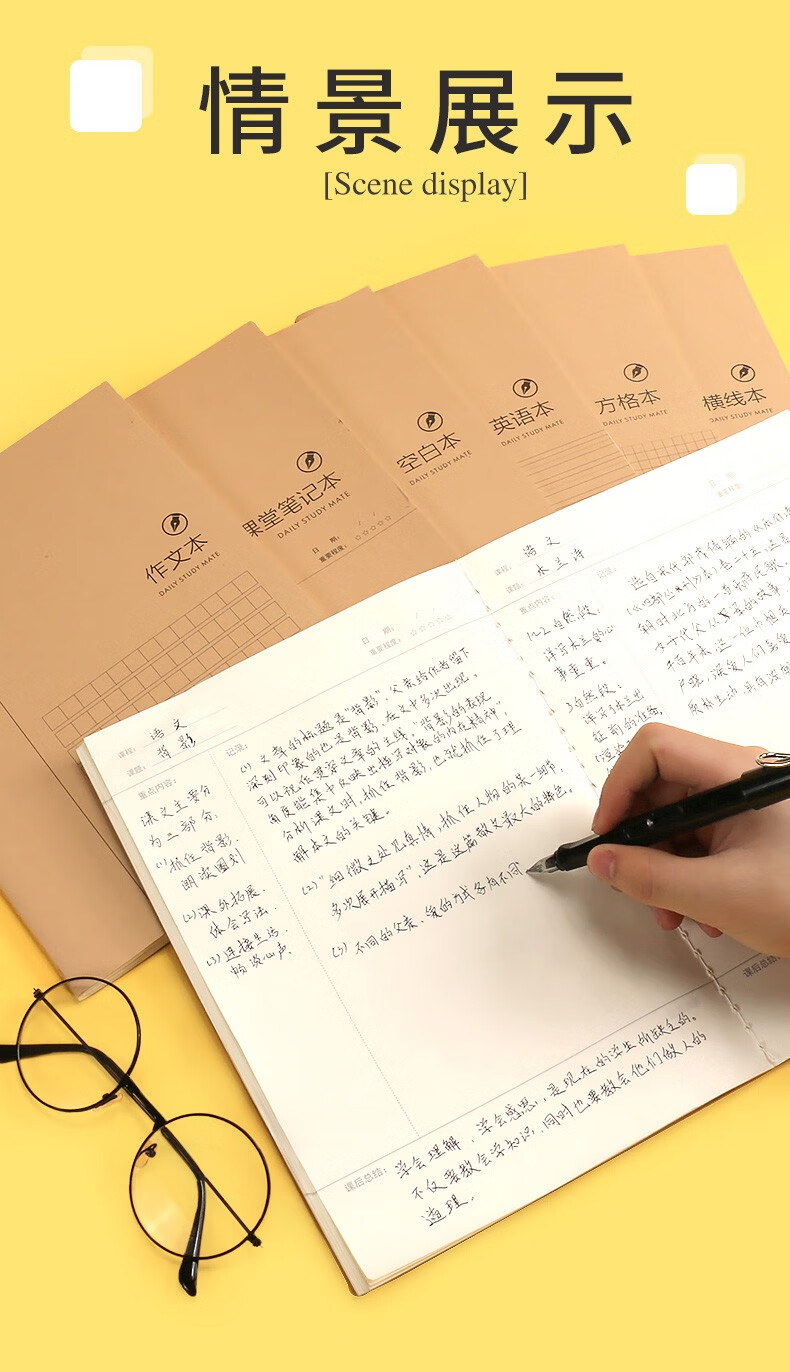 情景展示
[Scene display]
作文本
DAILY STUDY MATE
课堂笔记本
DAILY STUDY MATE
日 期:
重要程度: ☆☆☆☆☆
空白本
DAILY STUDY MATE
英语本
DAILY STUDY MATE
方格本
DAILY STUDY MATE
横线本
DAILY STUDY MATE
日 期:
重要程度: ☆☆☆☆☆
课程: 语文
课题: 背影
重点内容:
课文主要分
为三部分,
(1)抓住背影、
朗读图划
(2)课外拓展、
体会写法、
(3)连接生活、
畅谈心声.
记录:
(1) 文章的标题是“背影”,父亲给作者留下
深刻印象的也是背影,在文中多次出现。
可以说作贯穿文章的主线,“背影”的表现
角度能集中反映出描写对象的内在精神,
分析课文时,抓住背影,也就抓住了理
解本文的关键.
(2)“细微之处见真情,抓住人物的某一细节,
多次展开描写”,这是这篇散文最大的特色.
(3) 不同的父亲、爱的方式各有不同
课后总结: 学会理解,学会感恩,是现在的学生所缺乏的。
不仅要教会学知识,同时也要教会他们做人的
道理.
课程: 语文
课题: 木兰诗
重点内容:
1~2自然段,
详写木兰的心
事重重.
3自然段:
征前的准备,
记录:
日 期:
重要程度:
课后总结: